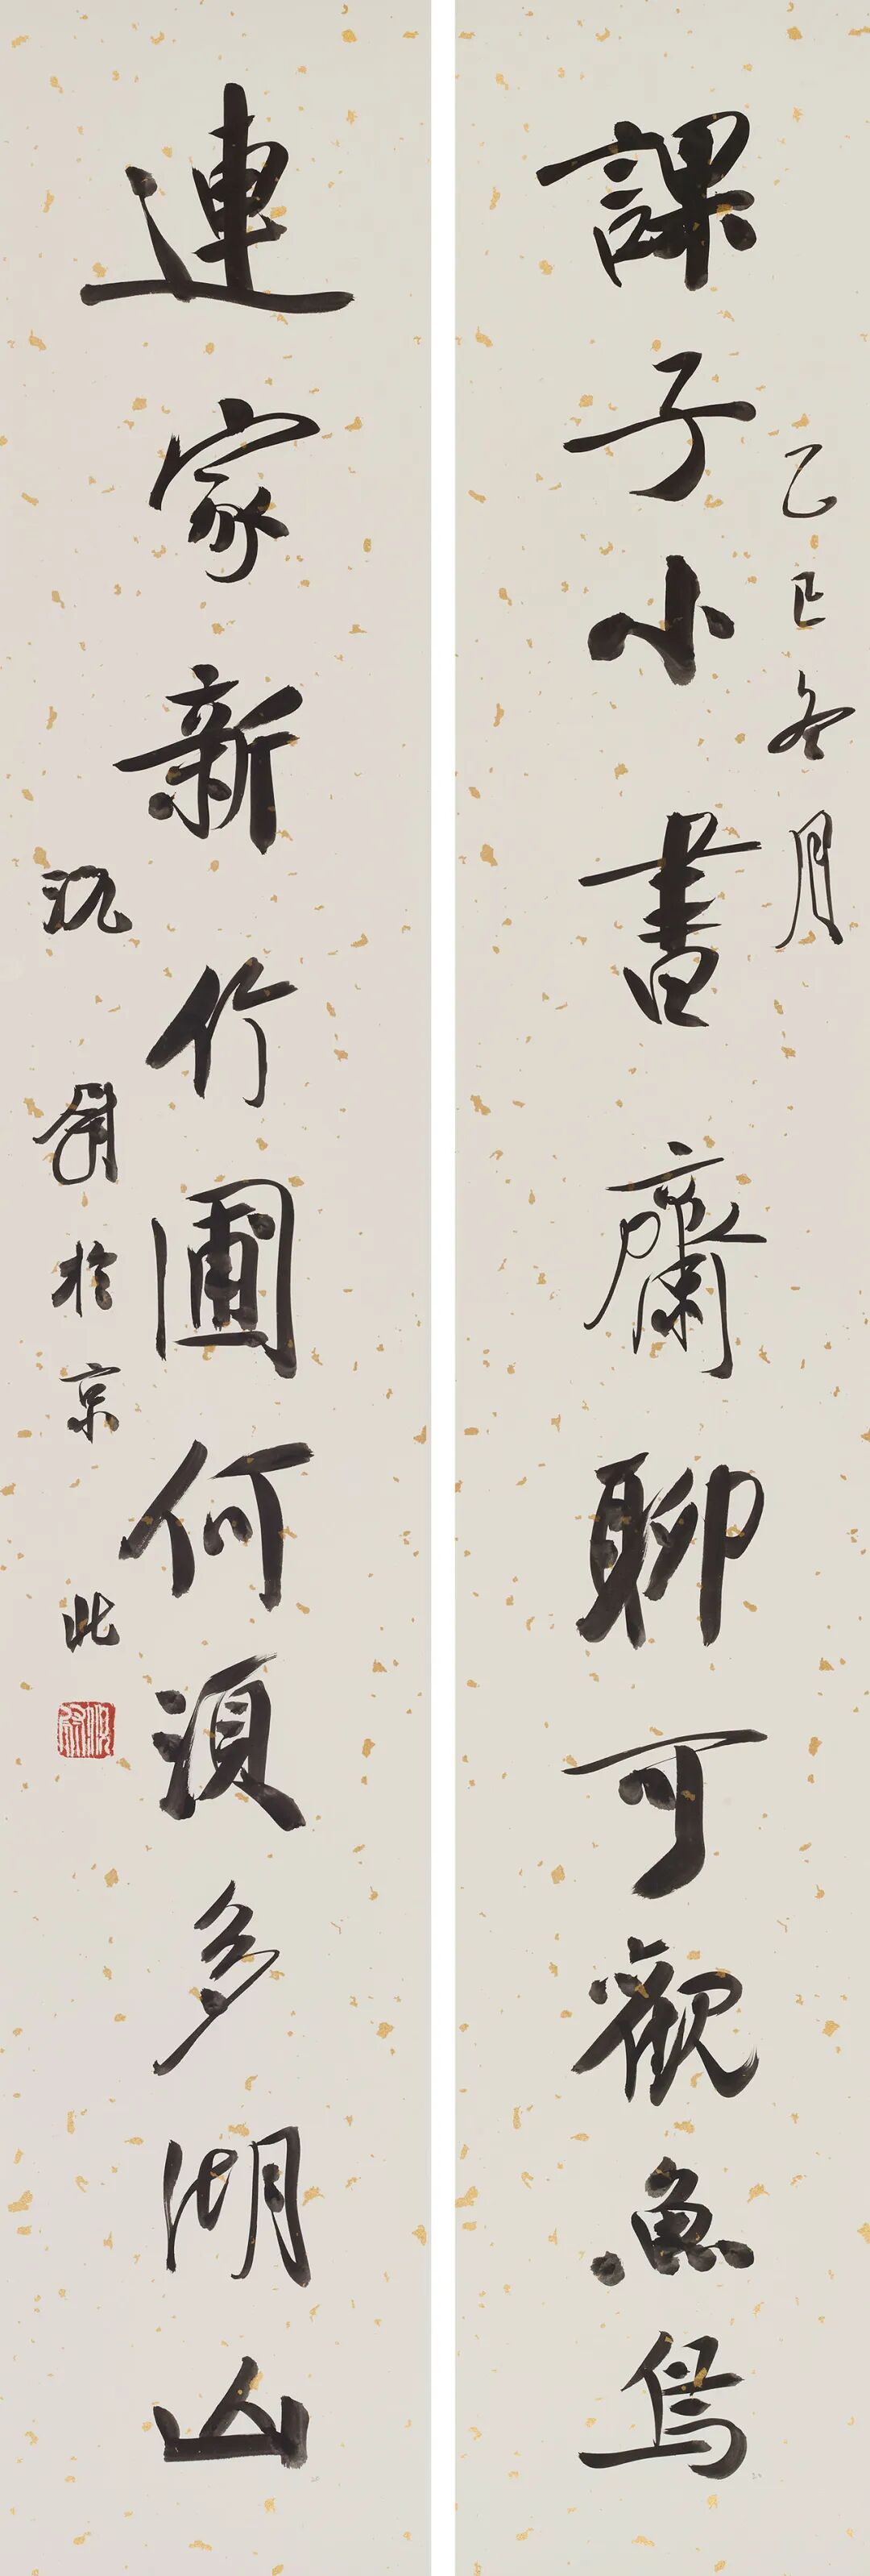 乙巳冬月
課子小書齋聊可觀魚鳥
連家新竹圃何須多湖山
沉
於京
此